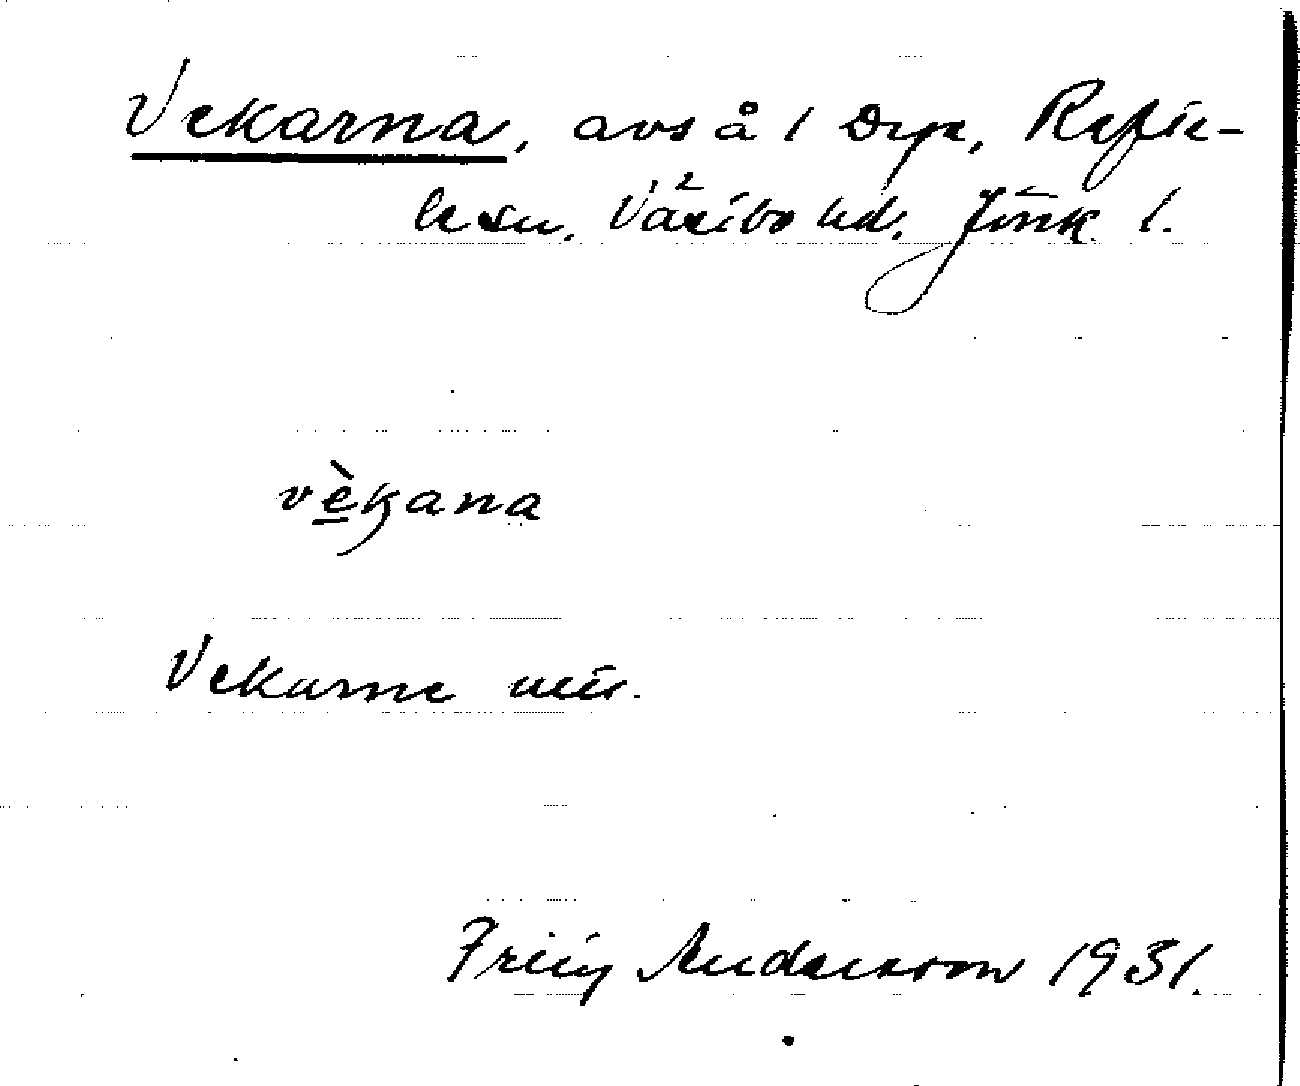 Vekarna, avs å 1 Refte-
le sn. Västbo hd. Jönk. l.
vèkana
Vekarne
Anderson 1931.